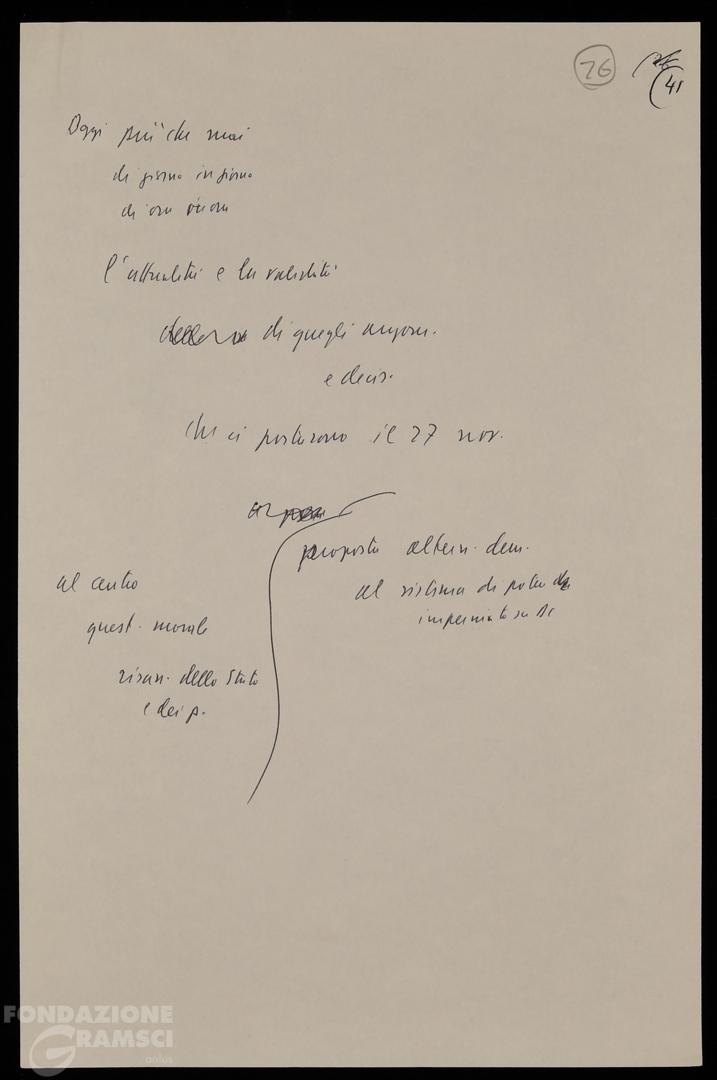 76
41
Oggi più che mai
di giorno in giorno
di ora in ora
l'attualità e la validità
di quegli argom.
e decis.
che ci portarono il 27 nov.
proposta altern. dem.
al sistema di potere
imperniato su DC
al centro
quest. morale
risan. dello Stato
e dei p.
FONDAZIONE
GRAMSCI
onlus